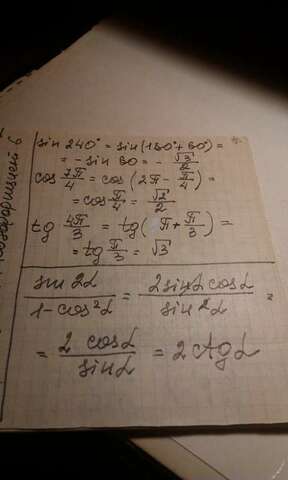 sin 240° = sin(180° + 60°) =
= - sin 60 = - √3/2
cos 7π/4 = cos(2π - π/4) =
= cos π/4 = √2/2
tg 4π/3 = tg(π + π/3) =
= tg π/3 = √3
sin 2α / 1 - cos²α = 2 sinα cosα / sin²α =
= 2 cosα / sinα = 2 ctgα